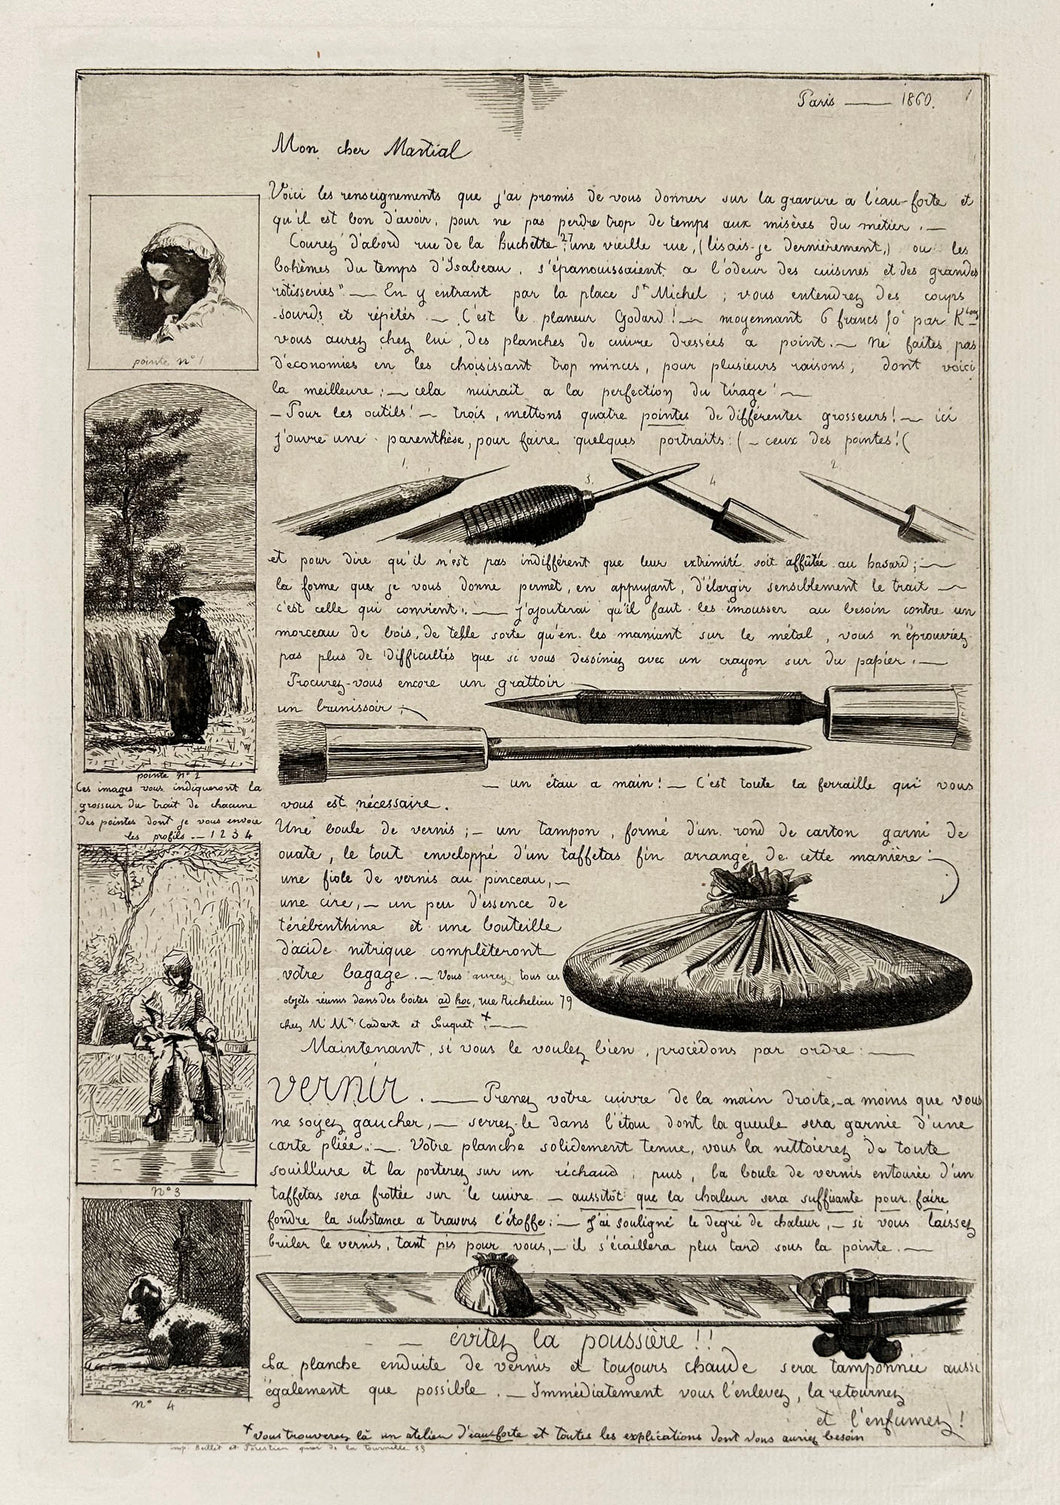 Paris — 1860. 1
Mon cher Martial
Voici les renseignements que j'ai promis de vous donner sur la gravure a l'eau-forte et
qu'il est bon d'avoir, pour ne pas perdre trop de temps aux misères du métier. —
Courez d'abord rue de la Huchette 27 "une vieille rue, (lisais-je dernièrement,) ou les
bohèmes du temps d'Isabeau, s'épanouissaient a l'odeur des cuisines et des grandes
rôtisseries" — En y entrant par la place St Michel ; vous entendrez des coups
sourds et répétés. — C'est le planeur Godard ! — moyennant 6 francs 50 par K
vous aurez chez lui, des planches de cuivre dressées a point. — Ne faites pas
d'économies en les choisissant trop minces, pour plusieurs raisons, dont voici
la meilleure ; — cela nuirait a la perfection du tirage ! —
— Pour les outils ! — trois, mettons quatre pointes de différentes grosseurs ! — ici
j'ouvre une parenthèse, pour faire quelques portraits : (— ceux des pointes ! (
1 3 4 2
et pour dire qu'il n'est pas indifférent que leur extrémité soit affûtée au hasard ; —
la forme que je vous donne permet, en appuyant, d'élargir sensiblement le trait —
c'est celle qui convient. — J'ajouterai qu'il faut les émousser au besoin contre un
morceau de bois, de telle sorte qu'en les maniant sur le métal, vous n'éprouviez
pas plus de difficultés que si vous dessiniez avec un crayon sur du papier. —
Procurez-vous encore un grattoir
un brunissoir ;
— un étau a main ! — C'est toute la ferraille qui vous
vous est nécessaire.
Une boule de vernis ; — un tampon, formé d'un rond de carton garni de
ouate, le tout enveloppé d'un taffetas fin arrangé de cette manière :
une fiole de vernis au pinceau, —
une cire, — un peu d'essence de
térébenthine et une bouteille
d'acide nitrique complèteront
votre bagage. — Vous aurez tous ces
objets réunis dans des boites ad hoc, rue Richelieu 79
chez M. Mrs Cadart et Luquet x —
Maintenant, si vous le voulez bien, procédons par ordre : —
vernir. — Prenez votre cuivre de la main droite, — a moins que vous
ne soyez gaucher, — serrez-le dans l'étau dont la gueule sera garnie d'une
carte pliée. — Votre planche solidement tenue, vous la nettoierez de toute
souillure et la porterez sur un réchaud, puis, la boule de vernis entourée d'un
taffetas sera frottée sur le cuivre — aussitôt que la chaleur sera suffisante pour faire
fondre la substance a travers l'étoffe : — J'ai souligné le degré de chaleur, — si vous laissez
bruler le vernis, tant pis pour vous, — il s'écaillera plus tard sous la pointe. —
— évitez la poussière !!
La planche enduite de vernis et toujours chaude sera tamponnée aussi
également que possible. — Immédiatement vous l'enlevez, la retournez
et l'enfumez !
x vous trouverez là un atelier d'eau-forte et toutes les explications dont vous auriez besoin
imp. quai de la Tournelle
pointe n° 1
pointe n° 2
Ces images vous indiqueront la
grosseur du trait de chacune
des pointes dont je vous envoie
les profils — 1 2 3 4
N° 3
n° 4